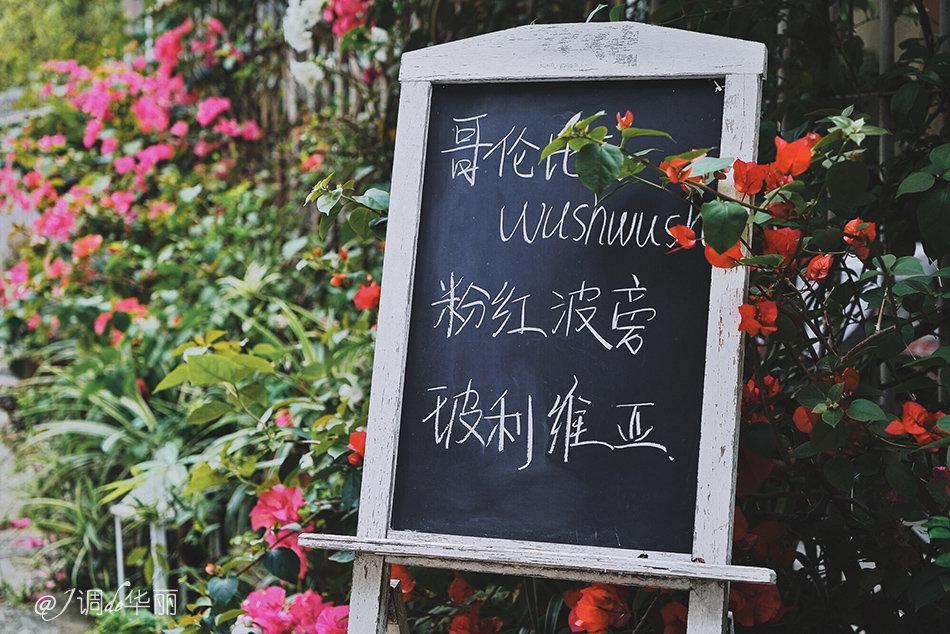 哥伦比
wushwush
粉红波旁
玻利维亚.
@J调de华丽